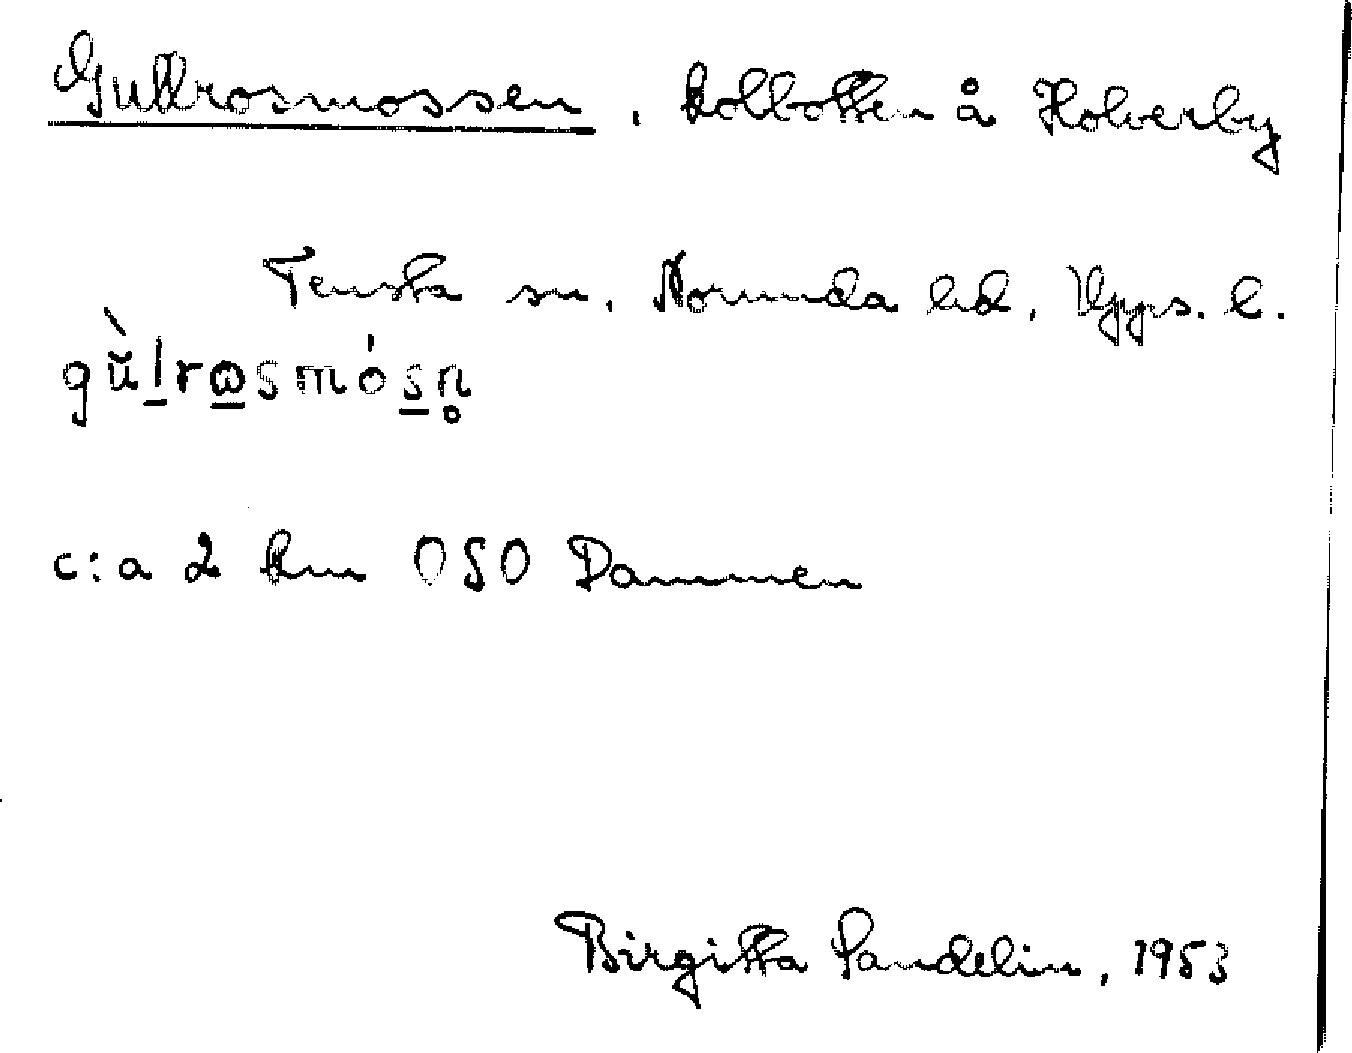 Gullrosmossen, kolbotten å Holverby
Tensta sn. Norunda hd, Upps. l.
gùlrꞷsmósn̥
c:a 2 km OSO Dammen
Birgitta Sandelin, 1953